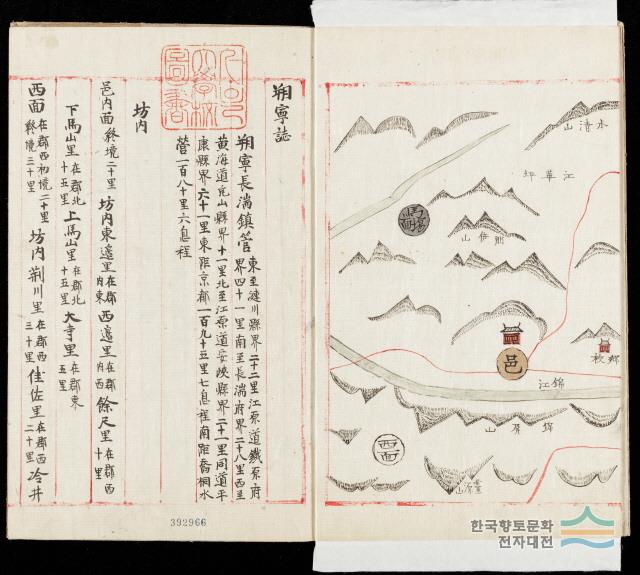 朔寧誌
朔寧長湍鎭管
東至漣川縣界二十二里江原道鐵原府
界四十一里南至長湍府界二十八里西至
黃海道兎山縣界十一里北至江原道安峽縣界二十一里同道平
康縣界六十一里東距京都一百九十五里七息程南距喬桐水
營一百八十里六息程
坊內
邑內面終境二十里 坊內東邊里在郡內東 西邊里在郡內西 餘尺里在郡西十里
下馬山里在郡北十五里 上馬山里在郡北十五里 大寺里在郡東五里
西面在郡西初境二十里終境三十里 坊內荊川里在郡西三十里 佳佐里在郡西二十里 冷井
392966
水清山
江華坪
山
邑
鄉校
錦江
錦屏山
西面
한국향토문화
전자대전